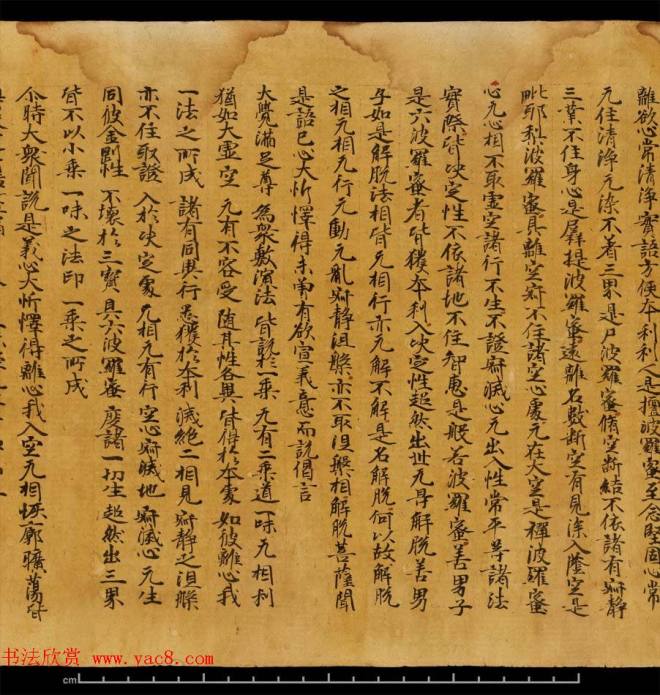 離欲心常清淨實語方便本利利人是檀波羅蜜至念堅固心常
无住清淨无染不着三界是尸波羅蜜脩空斷結不依諸有寂靜
三業不住身心是羼提波羅蜜遠離名數斷空有見深入蔭空是
毗耶利波羅蜜具離空寂不住諸空心處无在大空是禪波羅蜜
心无心相不取虛空諸行不生不證寂滅心无出入性常平等諸法
實際皆決定性不依諸地不住智惠是般若波羅蜜善男子
是六波羅蜜者皆獲本利入決定性超然出世无㝵解脫善男
子如是解脫法相皆无相行亦无解不解是名解脫何以故解脫
之相无相无行无動无亂寂靜涅槃亦不取涅槃相解脫菩薩聞
是語已心大忻懌得未曾有欲宣義意而說偈言
大覺滿足尊 為衆敷演法 皆說於一乘 无有二乘道 一味无相利
猶如大虛空 无有不容受 隨其性各異 皆得於本處 如彼離心我
一法之所成 諸有同異行 悉獲於本利 滅絕二相見 寂靜之涅槃
亦不住取證 入於決定處 无相无有行 空心寂滅地 寂滅心无生
同彼金剛性 不壞於三寶 具六波羅蜜 度諸一切生 超然出三界
皆不以小乘 一味之法印 一乘之所成
尒時大衆聞說是義心大忻懌得離心我入空无相恢廓曠蕩皆
书法欣赏 www.yac8.com
cm